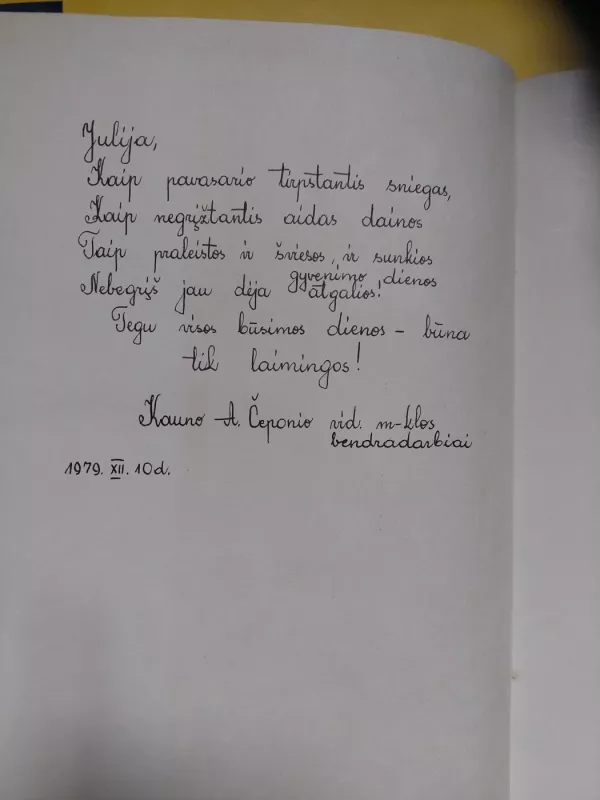 Julija,
Kaip pavasario tirpstantis sniegas,
Kaip negrįžtantis aidas dainos
Taip praleistos ir šviesos, ir sunkios
gyvenimo dienos
Nebegrįš jau dėja atgalios!
Tegu visos būsimos dienos – būna
tik laimingos!
Kauno A. Čeponio vid. m-klos
bendradarbiai
1979. XII. 10d.